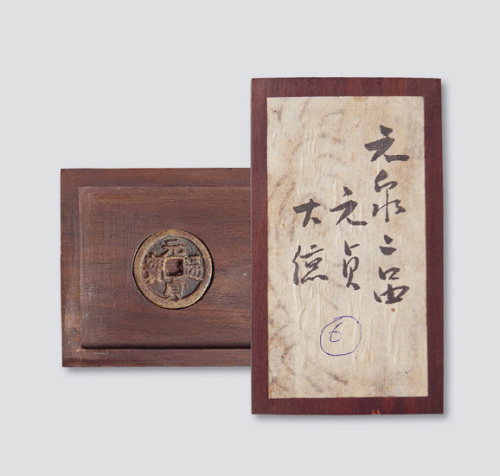 元泉二品
元贞
大德
元貞通寳